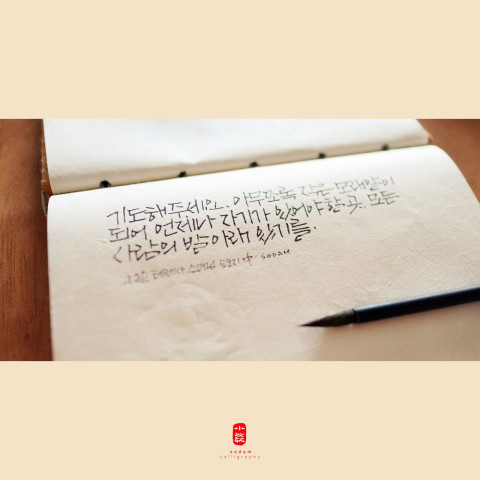 기도해주세요. 아무쪼록 작은 모래알이
되어 언제나 자기가 있어야 할 곳. 모든
사람의 발 아래 있기를.
sodam
小談
sodam
calligraphy